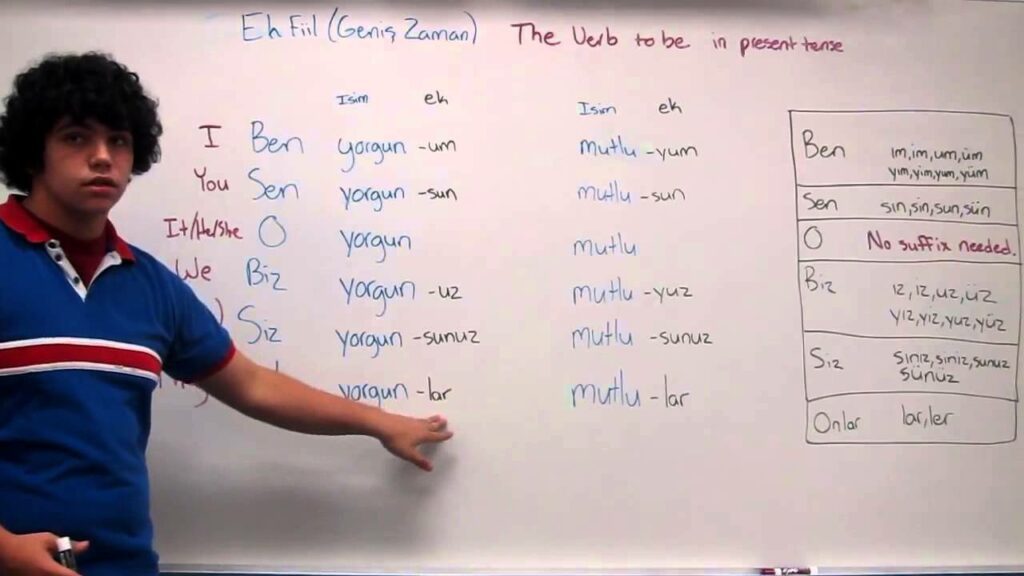 Ek Fiil (Geniş Zaman) The Verb to be in present tense
Isim ek Isim ek
I Ben yorgun -um mutlu -yum
You Sen yorgun -sun mutlu -sun
It/He/She O yorgun mutlu
We Biz yorgun -uz mutlu -yuz
Siz yorgun -sunuz mutlu -sunuz
yorgun -lar mutlu -lar
Ben ım, im, um, üm
yım, yim, yum, yüm
Sen sın, sin, sun, sün
O No suffix needed.
Biz ız, iz, uz, üz
yız, yiz, yuz, yüz
Siz sınız, siniz, sunuz
sünüz
Onlar lar, ler